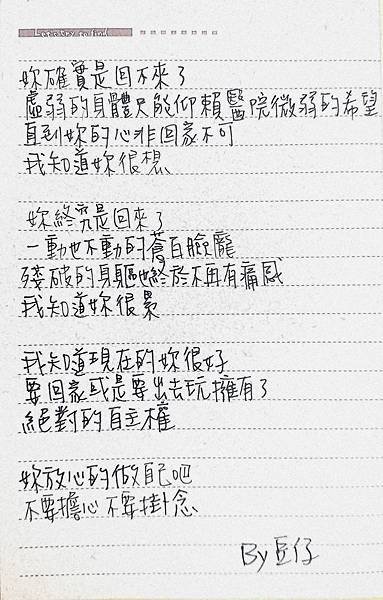 Let's try to find
妳確實是回不來了
虛弱的身體只能仰賴醫院微弱的希望
直到妳的心非回家不可
我知道妳很想
妳終究是回來了
一動也不動的蒼白臉龐
殘破的身軀也終於不再有痛感
我知道妳很累
我知道現在的妳很好
要回家或是要出去玩擁有了
絕對的自主權
妳放心的做自己吧
不要擔心不要掛念
By 豆仔